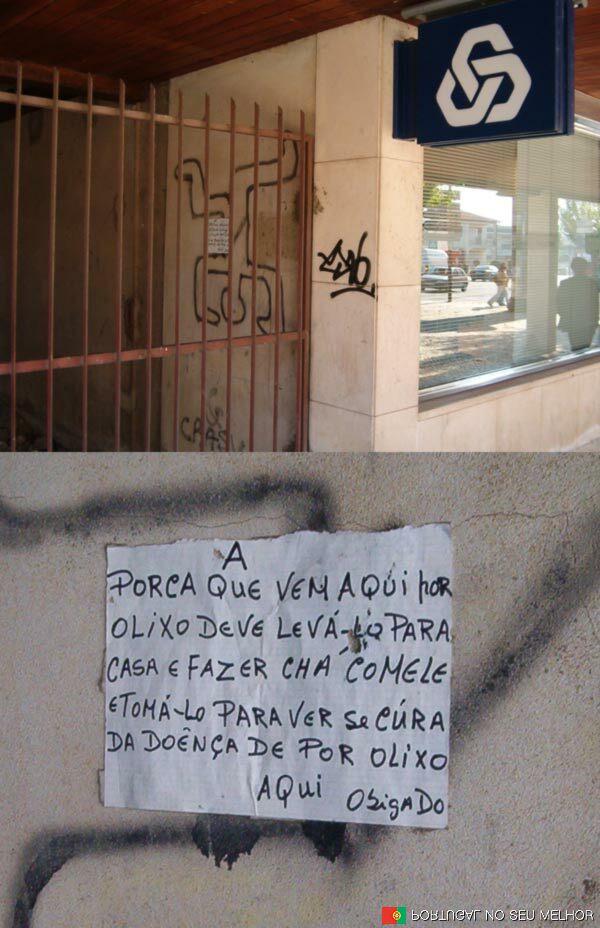 A
PORCA QUE VEM AQUI POR
OLIXO DEVE LEVÁ-LO PARA
CASA E FAZER CHÁ COMELE
E TOMÁ-LO PARA VER SE CÚRA
DA DOÊNÇA DE POR OLIXO
AQUI OBIGADO
PORTUGAL NO SEU MELHOR